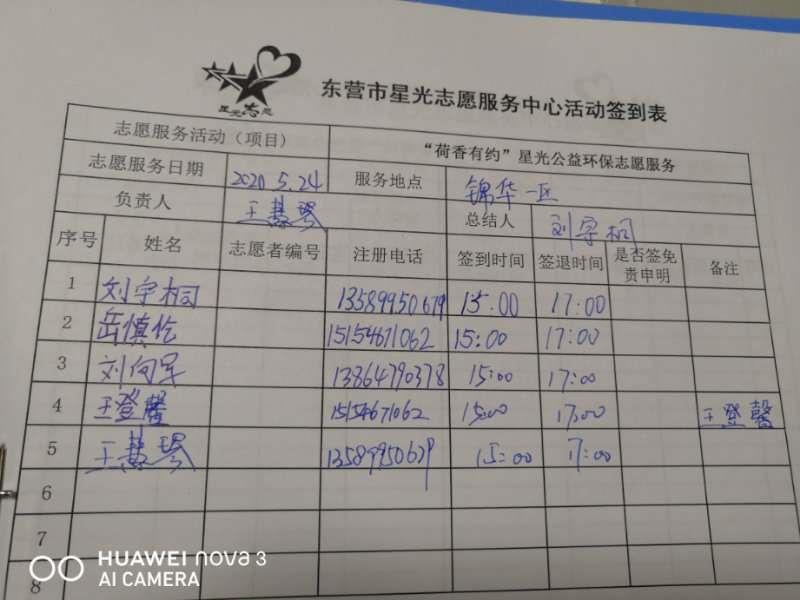 星光志愿
东营市星光志愿服务中心活动签到表
志愿服务活动（项目） “荷香有约”星光公益环保志愿服务
志愿服务日期 2020 5.24 服务地点 锦华一区
负责人 王慧琴 总结人 刘宇桐
序号 姓名 志愿者编号 注册电话 签到时间 签退时间 是否签免责申明 备注
1 刘宇桐 13589950679 15:00 17:00
2 岳慎伦 15154671062 15:00 17:00
3 刘向军 13864790378 15:00 17:00
4 王登馨 15154671062 15:00 17:00 王登馨
5 王慧琴 13589950679 15:00 17:00
6
7
8
HUAWEI nova 3
AI CAMERA